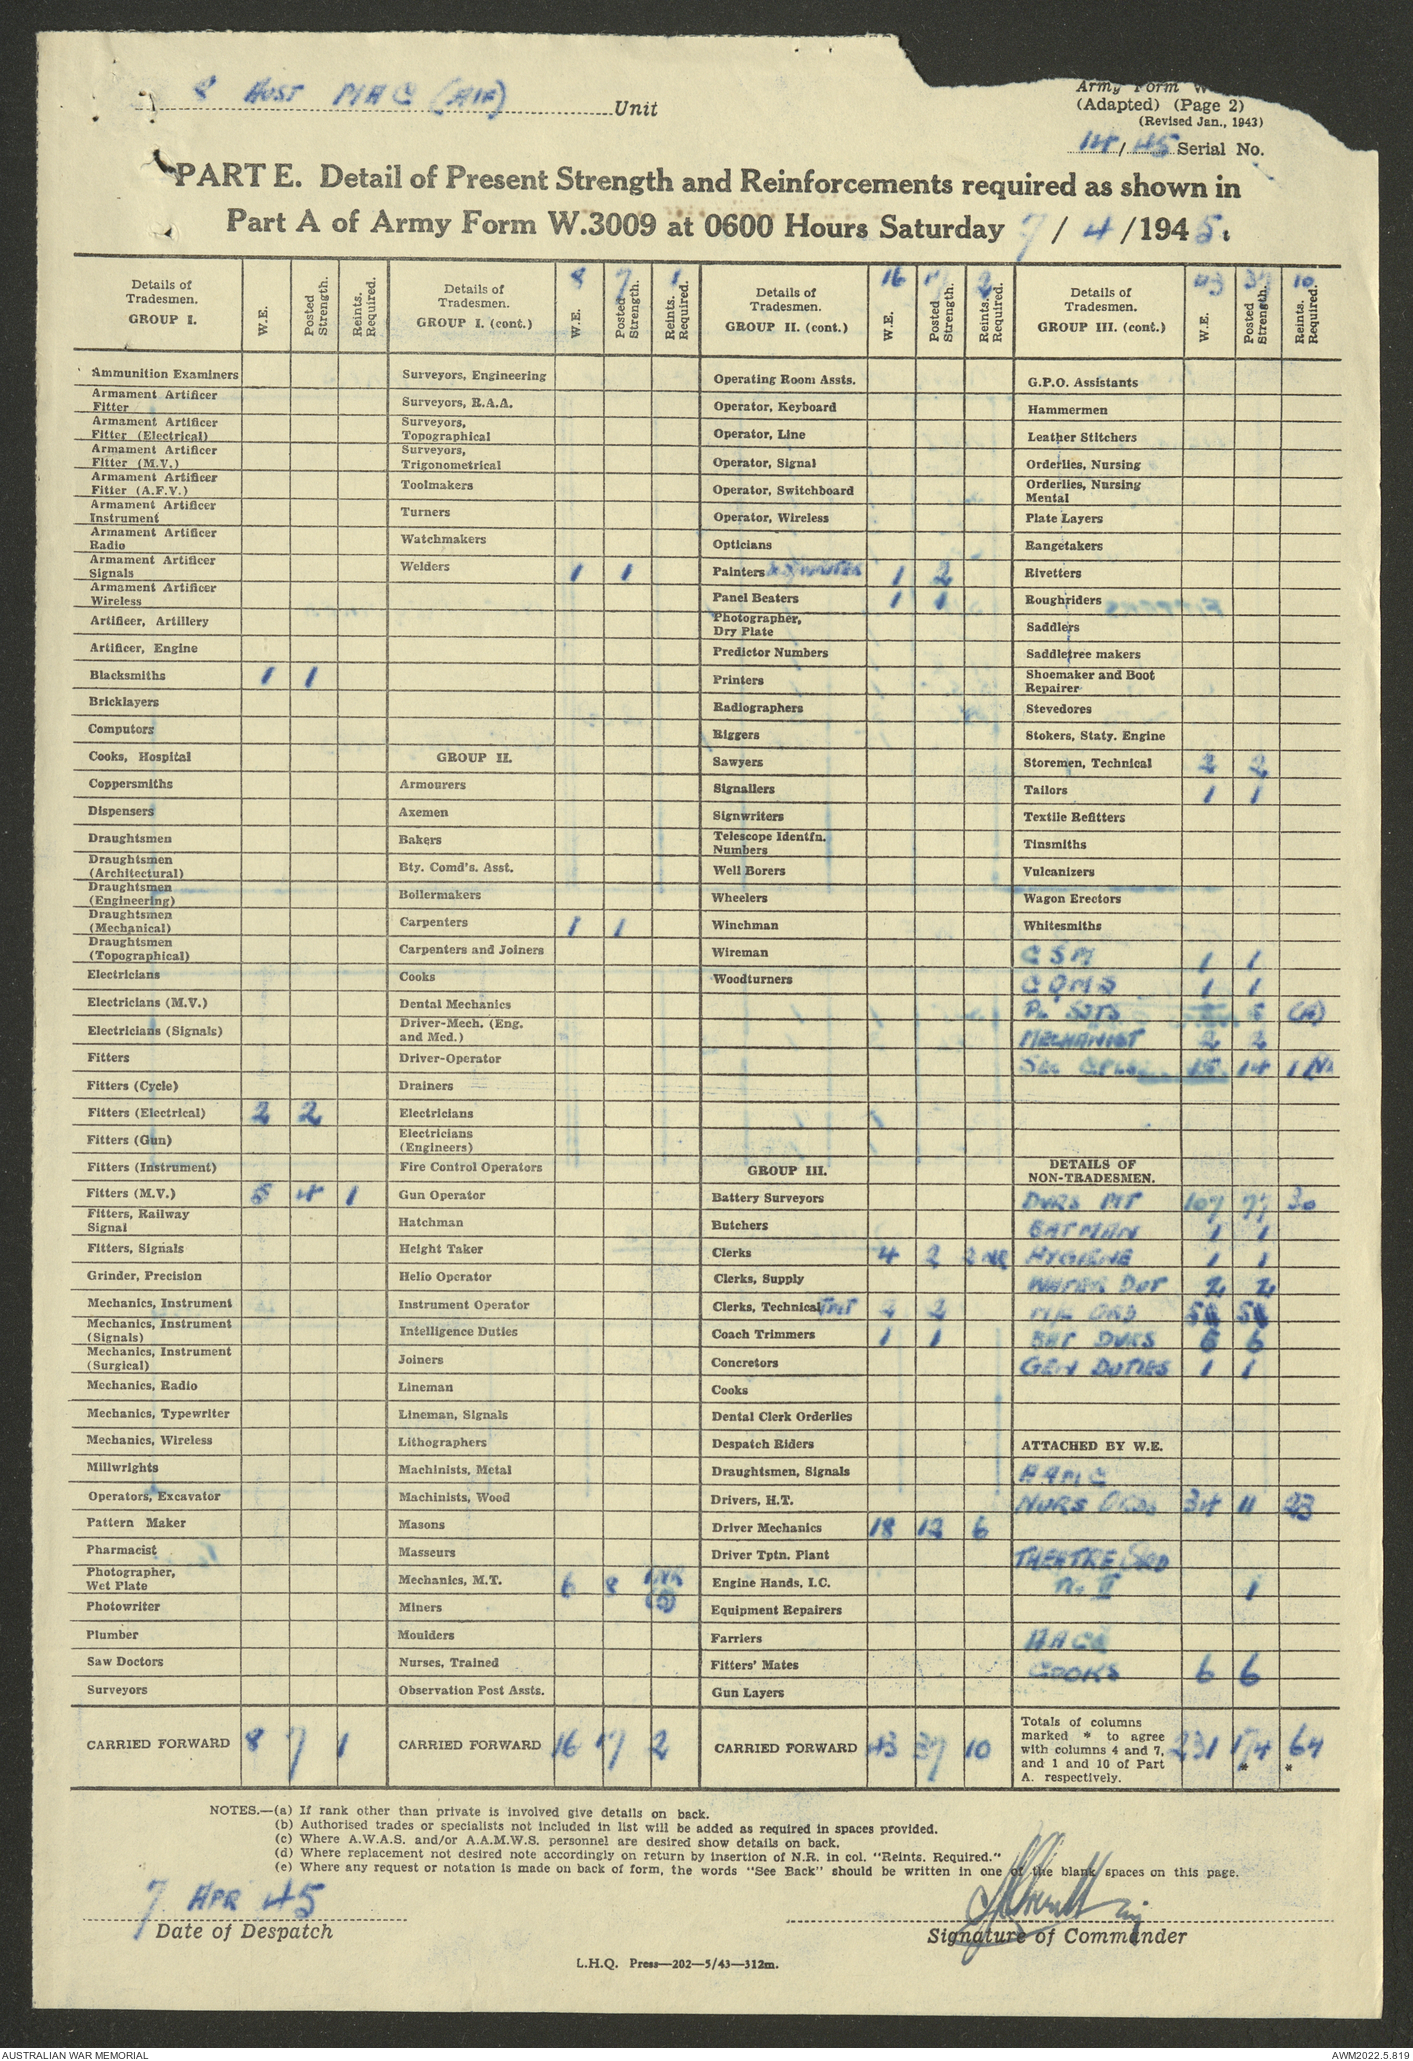 8 AUST MAC (AIF) Unit
Army Form W
(Adapted) (Page 2)
(Revised Jan., 1943)
14/45 Serial No.
PART E. Detail of Present Strength and Reinforcements required as shown in
Part A of Army Form W.3009 at 0600 Hours Saturday 7/4/1945.
Details of Tradesmen. GROUP I. W.E. Posted Strength. Reints. Required.
Ammunition Examiners
Armament Artificer
Fitter
Armament Artificer
Fitter (Electrical)
Armament Artificer
Fitter (M.V.)
Armament Artificer
Fitter (A.F.V.)
Armament Artificer
Instrument
Armament Artificer
Radio
Armament Artificer
Signals
Armament Artificer
Wireless
Artificer, Artillery
Artificer, Engine
Blacksmiths 1 1
Bricklayers
Computors
Cooks, Hospital
Coppersmiths
Dispensers
Draughtsmen
Draughtsmen
(Architectural)
Draughtsmen
(Engineering)
Draughtsmen
(Mechanical)
Draughtsmen
(Topographical)
Electricians
Electricians (M.V.)
Electricians (Signals)
Fitters
Fitters (Cycle)
Fitters (Electrical) 2 2
Fitters (Gun)
Fitters (Instrument)
Fitters (M.V.) 5 4 1
Fitters, Railway
Signal
Fitters, Signals
Grinder, Precision
Mechanics, Instrument
Mechanics, Instrument
(Signals)
Mechanics, Instrument
(Surgical)
Mechanics, Radio
Mechanics, Typewriter
Mechanics, Wireless
Millwrights
Operators, Excavator
Pattern Maker
Pharmacist
Photographer,
Wet Plate
Photowriter
Plumber
Saw Doctors
Surveyors
CARRIED FORWARD 8 7 1
Details of Tradesmen. GROUP I. (cont.) W.E. Posted Strength. Reints. Required.
8 7 1
Surveyors, Engineering
Surveyors, R.A.A.
Surveyors,
Topographical
Surveyors,
Trigonometrical
Toolmakers
Turners
Watchmakers
Welders 1 1
GROUP II.
Armourers
Axemen
Bakers
Bty. Comd's. Asst.
Boilermakers
Carpenters 1 1
Carpenters and Joiners
Cooks
Dental Mechanics
Driver-Mech. (Eng.
and Med.)
Driver-Operator
Drainers
Electricians
Electricians
(Engineers)
Fire Control Operators
Gun Operator
Hatchman
Height Taker
Helio Operator
Instrument Operator
Intelligence Duties
Joiners
Lineman
Lineman, Signals
Lithographers
Machinists, Metal
Machinists, Wood
Masons
Masseurs
Mechanics, M.T. 6 8
Miners
Moulders
Nurses, Trained
Observation Post Assts.
CARRIED FORWARD 16 17 2
Details of Tradesmen. GROUP II. (cont.) W.E. Posted Strength. Reints. Required.
16 17 2
Operating Room Assts.
Operator, Keyboard
Operator, Line
Operator, Signal
Operator, Switchboard
Operator, Wireless
Opticians
Painters 1 2
Panel Beaters 1 1
Photographer,
Dry Plate
Predictor Numbers
Printers
Radiographers
Riggers
Sawyers
Signallers
Signwriters
Telescope Identfn.
Numbers
Well Borers
Wheelers
Winchman
Wireman
Woodturners
GROUP III.
Battery Surveyors
Butchers
Clerks 4 2 2 NR
Clerks, Supply
Clerks, Technical 2 2
Coach Trimmers 1 1
Concretors
Cooks
Dental Clerk Orderlies
Despatch Riders
Draughtsmen, Signals
Drivers, H.T.
Driver Mechanics 18 12 6
Driver Tptn. Plant
Engine Hands, I.C.
Equipment Repairers
Farriers
Fitters' Mates
Gun Layers
CARRIED FORWARD 43 37 10
Details of Tradesmen. GROUP III. (cont.) W.E. Posted Strength. Reints. Required.
43 37 10
G.P.O. Assistants
Hammermen
Leather Stitchers
Orderlies, Nursing
Orderlies, Nursing
Mental
Plate Layers
Rangetakers
Rivetters
Roughriders
Saddlers
Saddletree makers
Shoemaker and Boot
Repairer
Stevedores
Stokers, Staty. Engine
Storemen, Technical 2 2
Tailors 1 1
Textile Refitters
Tinsmiths
Vulcanizers
Wagon Erectors
Whitesmiths
CSM 1 1
CQMS 1 1
PL SJTS
MECHANIST 2 2
SEC CPLS 15 14 1
DETAILS OF
NON-TRADESMEN.
DVRS MT 107 77 30
BATMAN 1 1
HYGIENE 1 1
WATER DUT 2 2
ORD 5 5
BAT DVRS 6 6
GEN DUTIES 1 1
ATTACHED BY W.E.
AAMC
NURS ORDS 34 11 23
THEATRE ORD
II 1
AACC
COOKS 6 6
Totals of columns
marked * to agree
with columns 4 and 7,
and 1 and 10 of Part
A. respectively. 231 174 * 64 *
NOTES.—(a) If rank other than private is involved give details on back.
(b) Authorised trades or specialists not included in list will be added as required in spaces provided.
(c) Where A.W.A.S. and/or A.A.M.W.S. personnel are desired show details on back.
(d) Where replacement not desired note accordingly on return by insertion of N.R. in col. "Reints. Required."
(e) Where any request or notation is made on back of form, the words "See Back" should be written in one of the blank spaces on this page.
7 APR 45
Date of Despatch
Signature of Commander
L.H.Q. Press—202—5/43—312m.
AUSTRALIAN WAR MEMORIAL
AWM2022.5.819